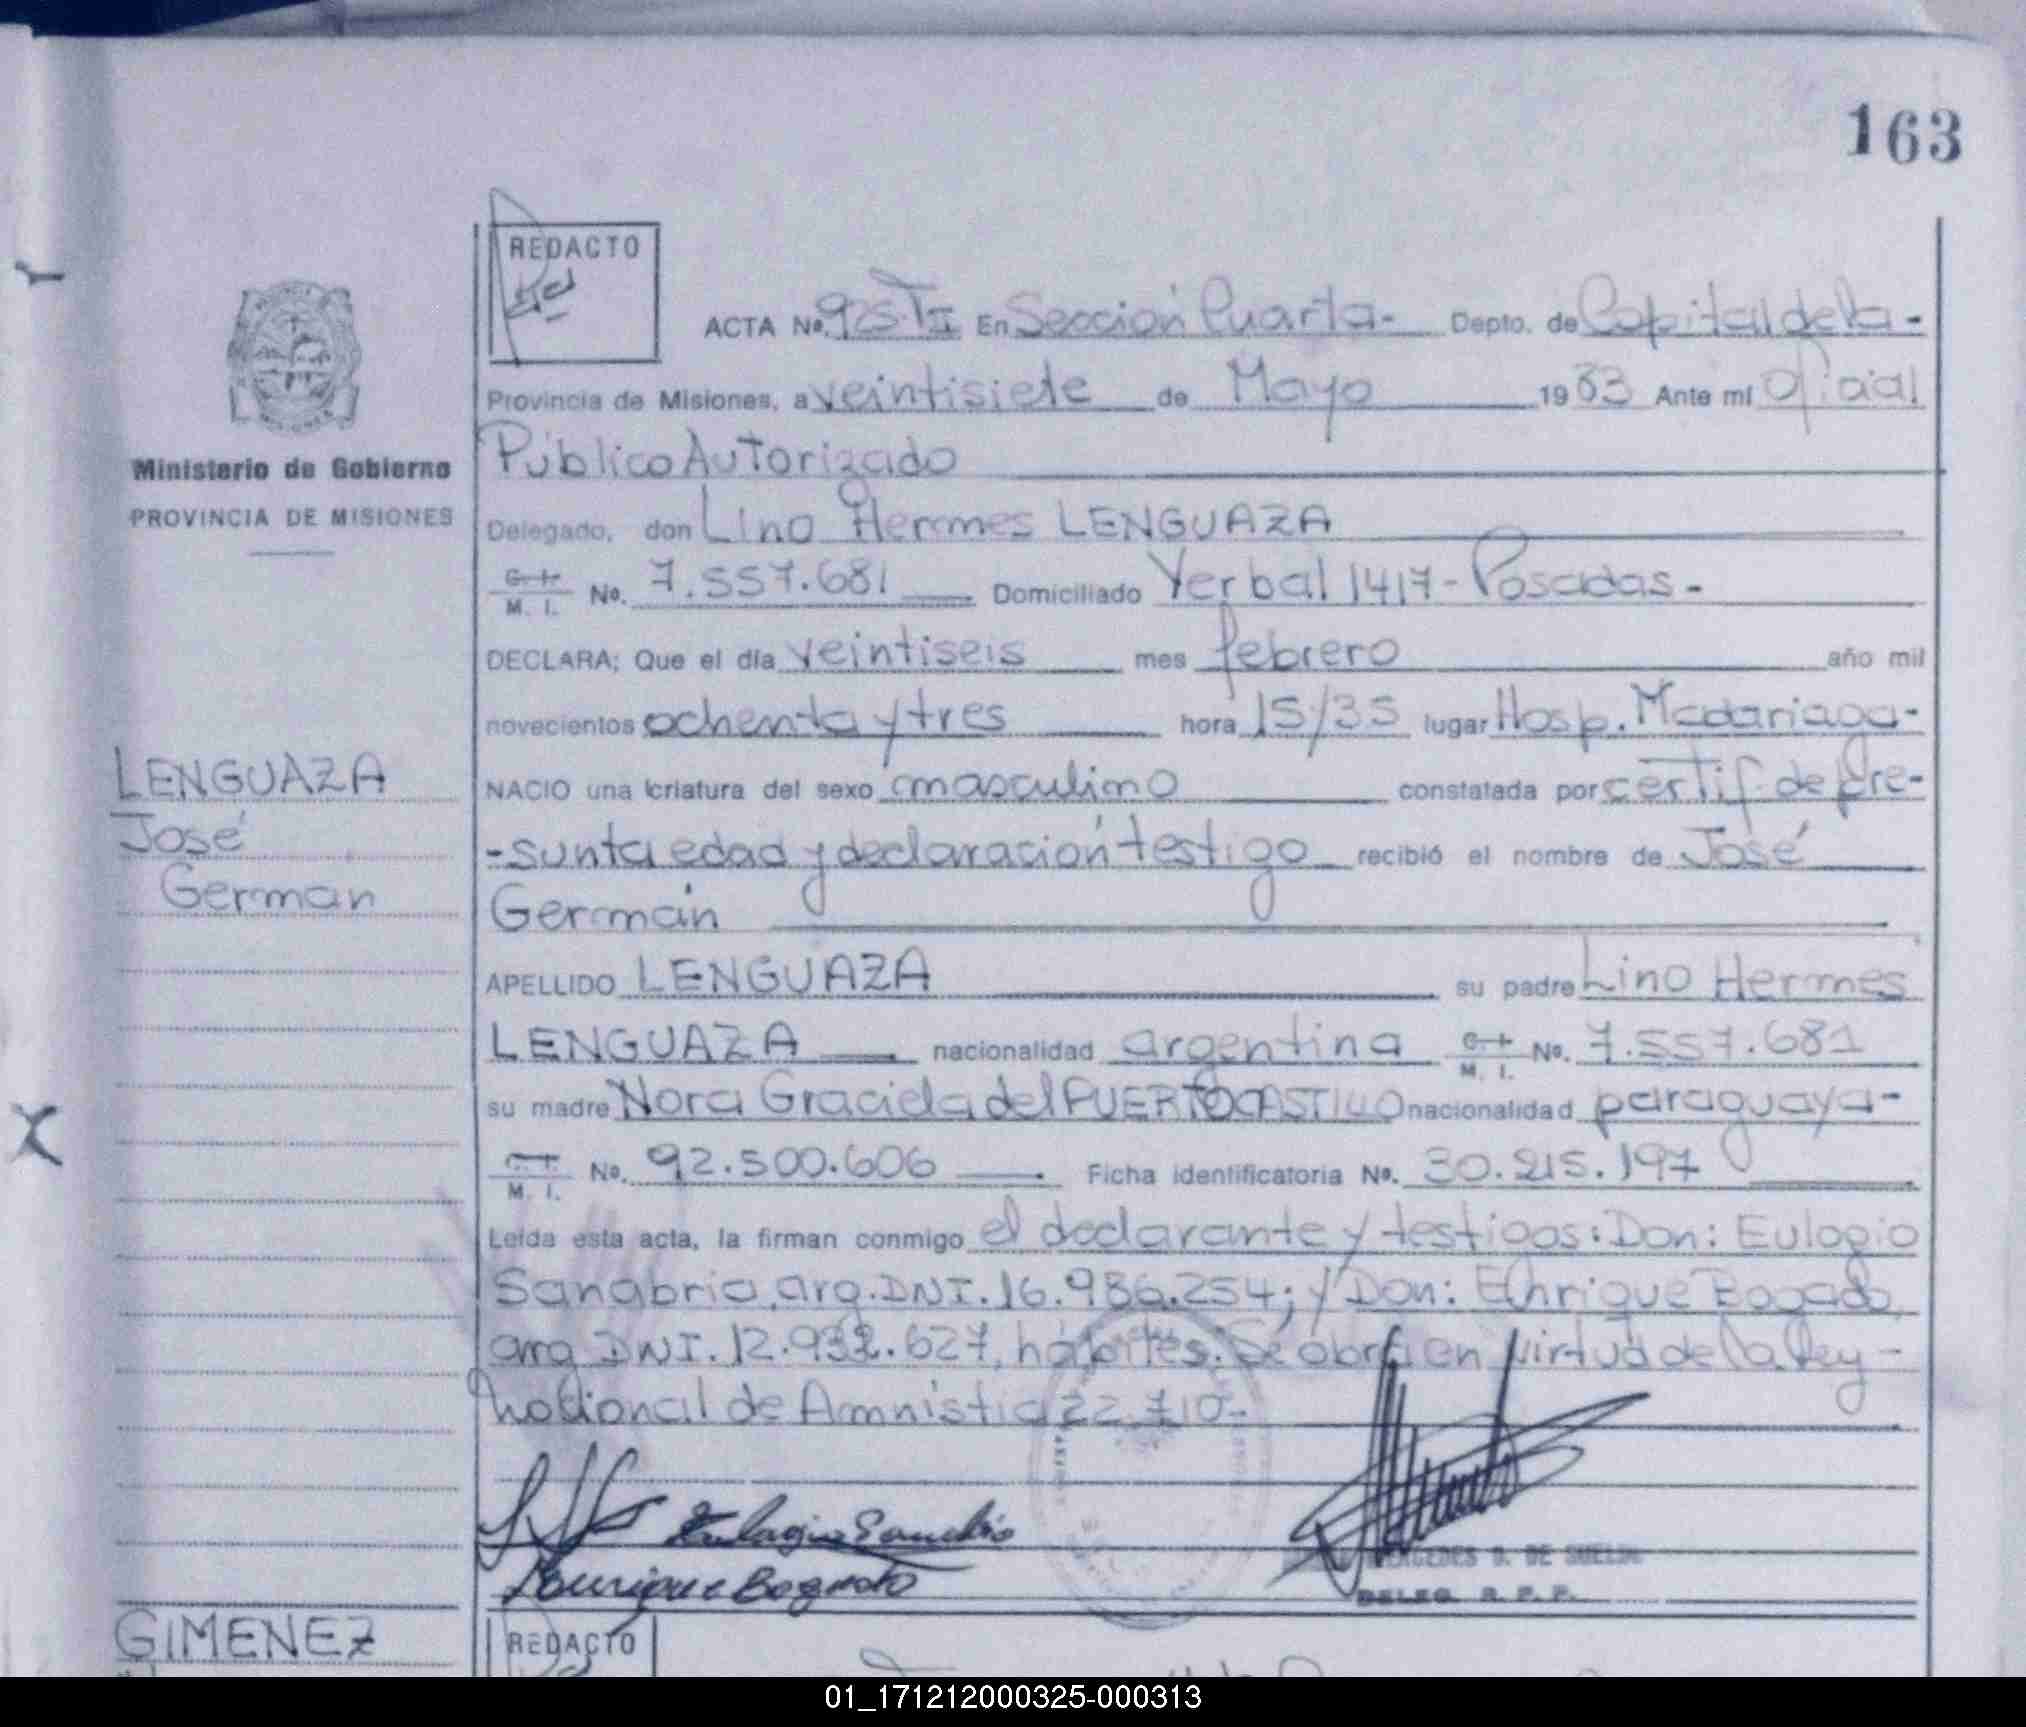 163
REDACTO
ACTA No. 925 TI En Sección Cuarta- Depto. de Capital de la-
Provincia de Misiones, a veintisiete de Mayo 1983 Ante mí Oficial
Público Autorizado
Ministerio de Gobierno
PROVINCIA DE MISIONES
Delegado, don Lino Hermes LENGUAZA
C. I. M. I. No. 7.557.681 Domiciliado Yerbal 1417- Posadas-
DECLARA; Que el día veintiseis mes febrero año mil
novecientos ochenta y tres hora 15/35 lugar Hosp. Madariaga-
LENGUAZA
José
German
NACIO una criatura del sexo masculino constatada por certif. de pre-
-sunta edad y declaración testigo recibió el nombre de José
Germán
APELLIDO LENGUAZA su padre Lino Hermes
LENGUAZA nacionalidad argentina C. I. M. I. No. 7.557.681
su madre Nora Graciela del PUERTO CASTILLO nacionalidad paraguaya-
C. I. M. I. No. 92.500.606 Ficha identificatoria No. 30.215.197
Leída esta acta, la firman conmigo el declarante y testigos: Don: Eulogio
Sanabria, arg. DNI. 16.986.254; y Don: Enrique Bogado,
arg DNI. 12.932.627, hábiles. Se obra en virtud de la ley-
nacional de Amnistia 22.710-
Eulogio Sanabria
Enrique Bogado
MERCEDES D. DE SUELDO
DELEG. R. P. P.
GIMENEZ
REDACTO
01_171212000325-000313